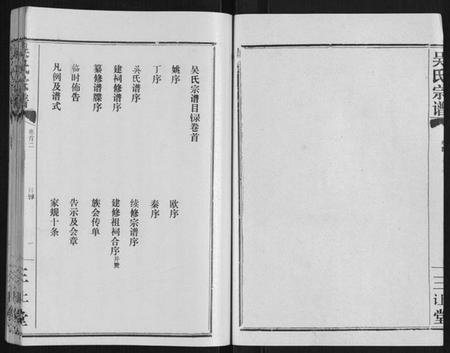 吴氏宗谱
三让堂
吴氏宗谱目录卷首
姚序
欧序
丁序
秦序
吴氏谱序
续修宗谱序
建祠修谱序
建修祖祠合序并赞
纂修谱牒序
族会传单
临时佈告
告示及会章
凡例及谱式
家规十条
吴氏宗谱
卷首二
目录
三让堂